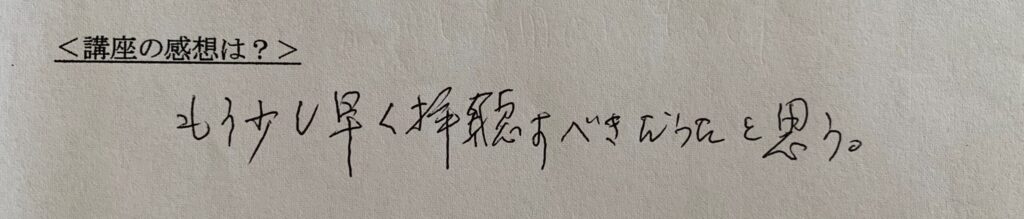 <講座の感想は？>
もう少し早く拝聴すべきだったと思う。